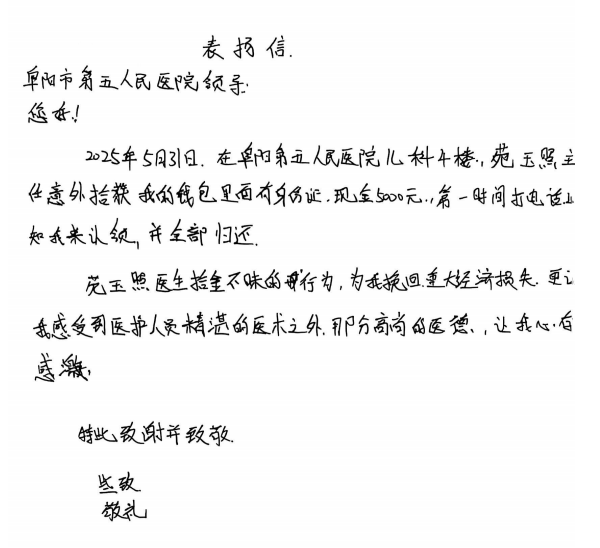 表扬信.
阜阳市第五人民医院领导:
您好!
2025年5月31日.在阜阳第五人民医院儿科4楼.,苑玉照主
任意外拾获我的钱包里面有身份证.现金5000元.,第一时间打电话
知我来认领,并全部归还.
苑玉照医生拾金不昧的行为,为我挽回重大经济损失.更让
我感受到医护人员精湛的医术之外.那份高尚的医德.,让我心存
感激,
特此致谢并致敬.
此致
敬礼